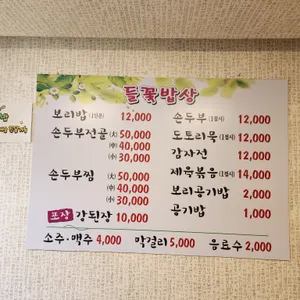 들꽃밥상
보리밥 (1인분) 12,000
손두부전골 (大) 50,000
(中) 40,000
(小) 30,000
손두부찜 (大) 50,000
(中) 40,000
(小) 30,000
포장 강된장 10,000
손두부 (1접시) 12,000
도토리묵 (1접시) 12,000
감자전 12,000
제육볶음 (1접시) 14,000
보리공기밥 2,000
공기밥 1,000
소주·맥주 4,000 막걸리 5,000 음료수 2,000